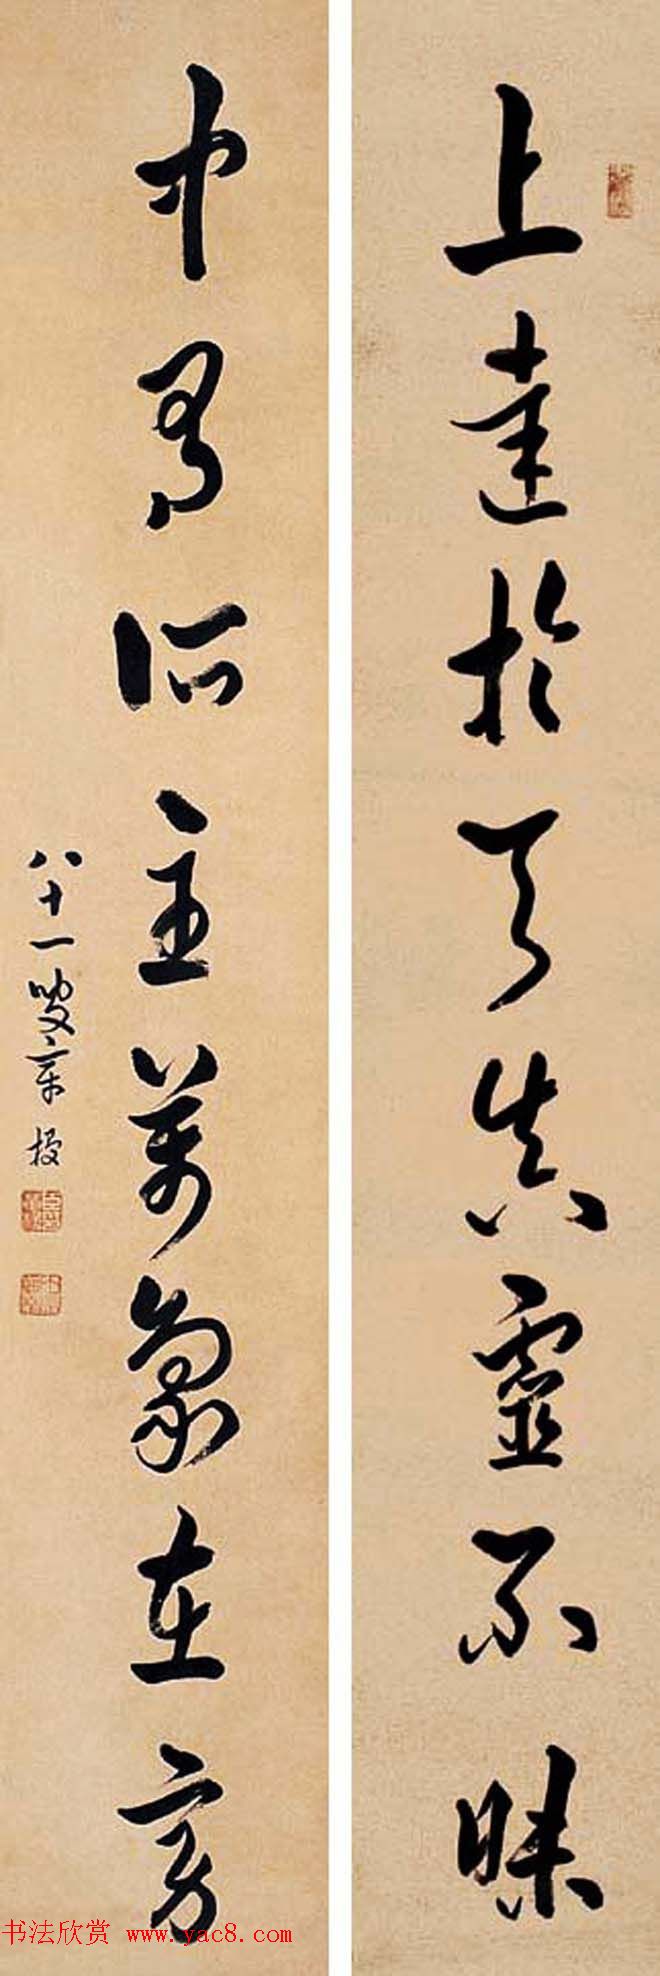 上达於天真靈不昧
中有所主萬象在旁
八十一叟章授
书法欣赏 www.yac8.com